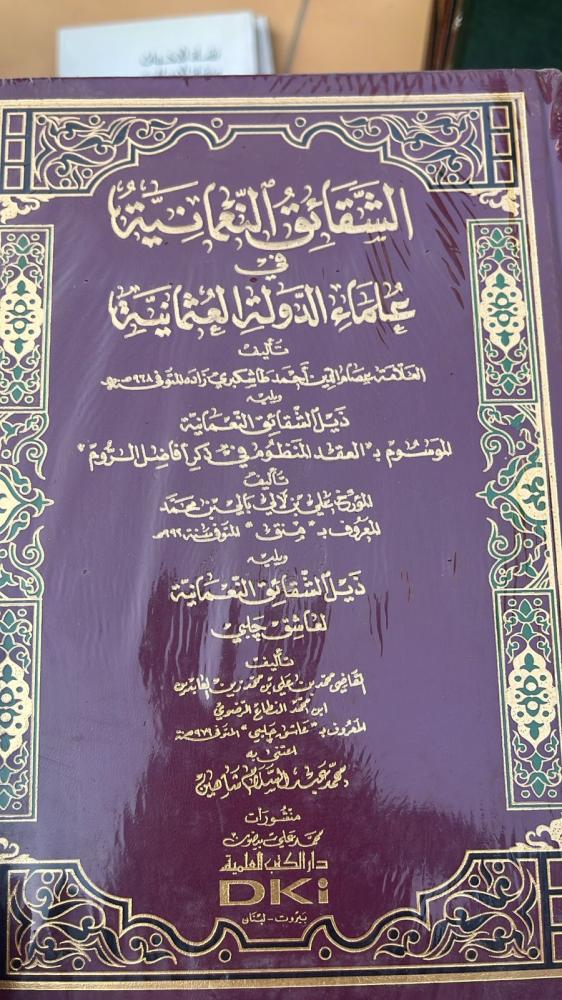 الشقائق النعمانية
في
علماء الدولة العثمانية
تأليف
العلامة عصام الدين أحمد طاشكبري زاده المتوفى ٩٦٨ هـ
ويليه
ذيل الشقائق النعمانية
الموسوم بـ "العقد المنظوم في ذكر أفاضل الروم"
تأليف
المؤرخ علي بن لالي بالي بن محمد
المعروف بـ "منق" المتوفى سنة ٩٩٢ هـ
ويليه
ذيل الشقائق النعمانية
لعاشق چلبي
تأليف
القاضي محمد بن علي بن محمد زين العابدين
ابن محمد النطاع الرضوي
المعروف بـ "عاشق چلبي" المتوفى ٩٧٩ هـ
اعتنى به
محمد عبد السلام شاهين
منشورات
محمد علي بيضون
دار الكتب العلمية
DKi
بيروت - لبنان